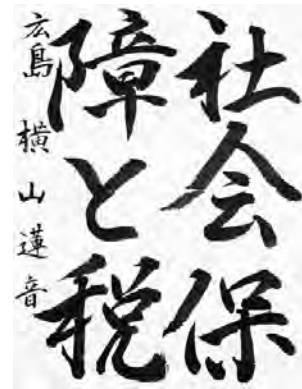 社会保
障と税
広島 横山蓮音